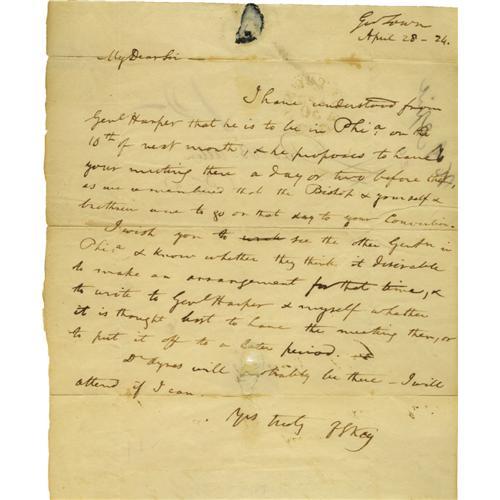 Geo Town
April 28 - 24.
My Dear Sir
I have understood from
Genl Harper that he is to be in Phia. on the
10th of next month, & he proposes to have
your meeting there a day or two before that,
as we remembered that the Bishop & yourself &
brethren were to go on that day to your Convention.
I wish you to see the other Gentn in
Phia & know whether they think it desirable
to make an arrangement for that time, &
to write to Genl Harper & myself whether
it is thought best to have the meeting then, or
to put it off to a later period.
Dr Ayres will probably be there - I will
attend if I can.
Yrs truly F S Key